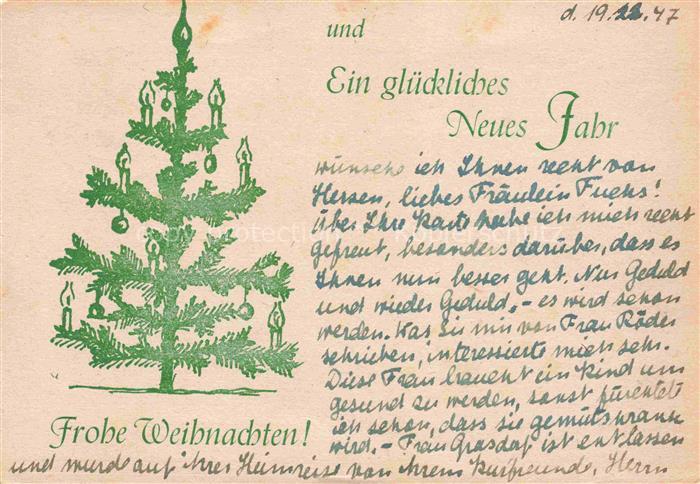 d. 19.12.47
und
Ein glückliches
Neues Jahr
wünsche ich Ihnen recht von
Herzen, liebes Fräulein Fuchs!
Über Ihre Karte habe ich mich recht
gefreut, besonders darüber, dass es
Ihnen nun besser geht. Nur Geduld
und wieder Geduld, – es wird schon
werden. Was Sie mir von Frau Röder
schrieben, interessierte mich sehr.
Diese Frau braucht ein Kind um
gesund zu werden, sonst fürchtete
ich schon, dass sie gemütskrank
wird. – Frau Grasdorf ist entlassen
und wurde auf ihrer Heimreise von ihrem Kurfreunde, Herrn
Frohe Weihnachten!